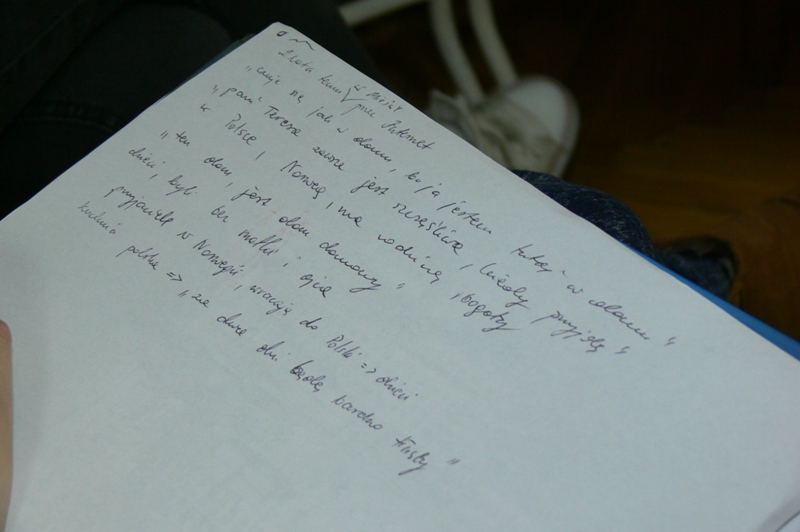 2 lata temu w przez Internet
"czuję się jak w domu, bo ja jestem tutaj w domu"
"pani Teresa zawsze jest szczęśliwa, kiedy przyjdę"
w Polsce, Norweg, ma rodzinę, bogaty
"ten dom, jest dom domowy"
dzieci, byli bez matki i ojca
przyjaciele w Norwegii, wracają do Polski => dzieci
kuchnia polska => "za dwa dni będę bardzo tłusty"